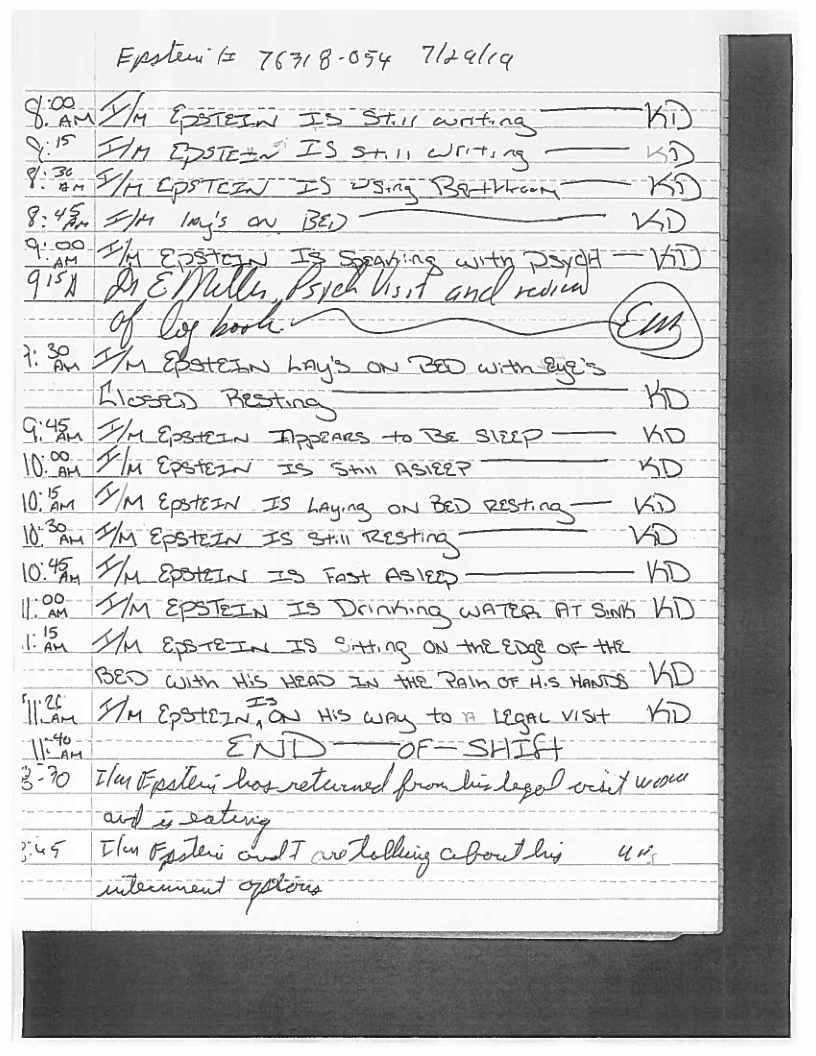 Epstein # 76318-054 7/29/19
8:00 AM I/M EPSTEIN IS Still writing KD
8:15 I/M EPSTEIN IS still writing KD
8:30 AM I/M EPSTEIN IS using Bathroom KD
8:45 AM I/M lay's on BED KD
9:00 AM I/M EPSTEIN IS Speaking with PSYCH KD
915A Dr E Miller, Psych Visit and review
of log book.
9:30 AM I/M EPSTEIN LAY'S ON BED with Eye's
CLOSED Resting KD
9:45 AM I/M EPSTEIN APPEARS to BE SLEEP KD
10:00 AM I/M EPSTEIN IS Still ASLEEP KD
10:15 AM I/M EPSTEIN IS LAying ON BED RESting KD
10:30 AM I/M EPSTEIN IS Still RESting KD
10:45 AM I/M EPSTEIN IS FAST ASleep KD
11:00 AM I/M EPSTEIN IS Drinking WATER AT Sink KD
11:15 AM I/M EPSTEIN IS Sitting ON the EDge OF the
BED with His HEAD IN the PAlm OF His HANDS KD
11:26 AM I/M EPSTEIN, IS ON His way to A LEgAL VISIT KD
11:40 AM END OF SHIFT
3-30 I/m Epstein has returned from his legal visit
and is eating
:45 I/m Epstein and I are talking about his
internment options